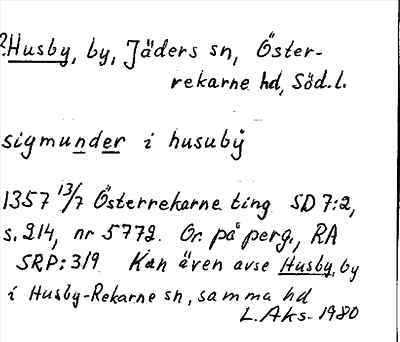 ?Husby, by, Jäders sn, Öster-
rekarne hd, Söd.l.
sigmunder i husubẏ
1357 13/7 Österrekarne ting SD 7:2,
s. 214, nr 5772. Or. på perg., RA
SRP: 319 Kan även avse Husby, by
i Husby-Rekarne sn, samma hd
L. Aks- 1980